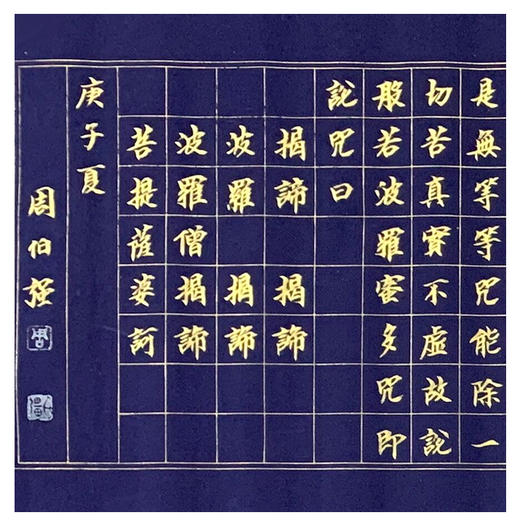 是無等等咒能除一
切苦真實不虛故說
般若波羅蜜多咒即
說咒曰
揭諦 揭諦
波羅 揭諦
波羅僧揭諦
菩提薩婆訶
庚子夏
周伯